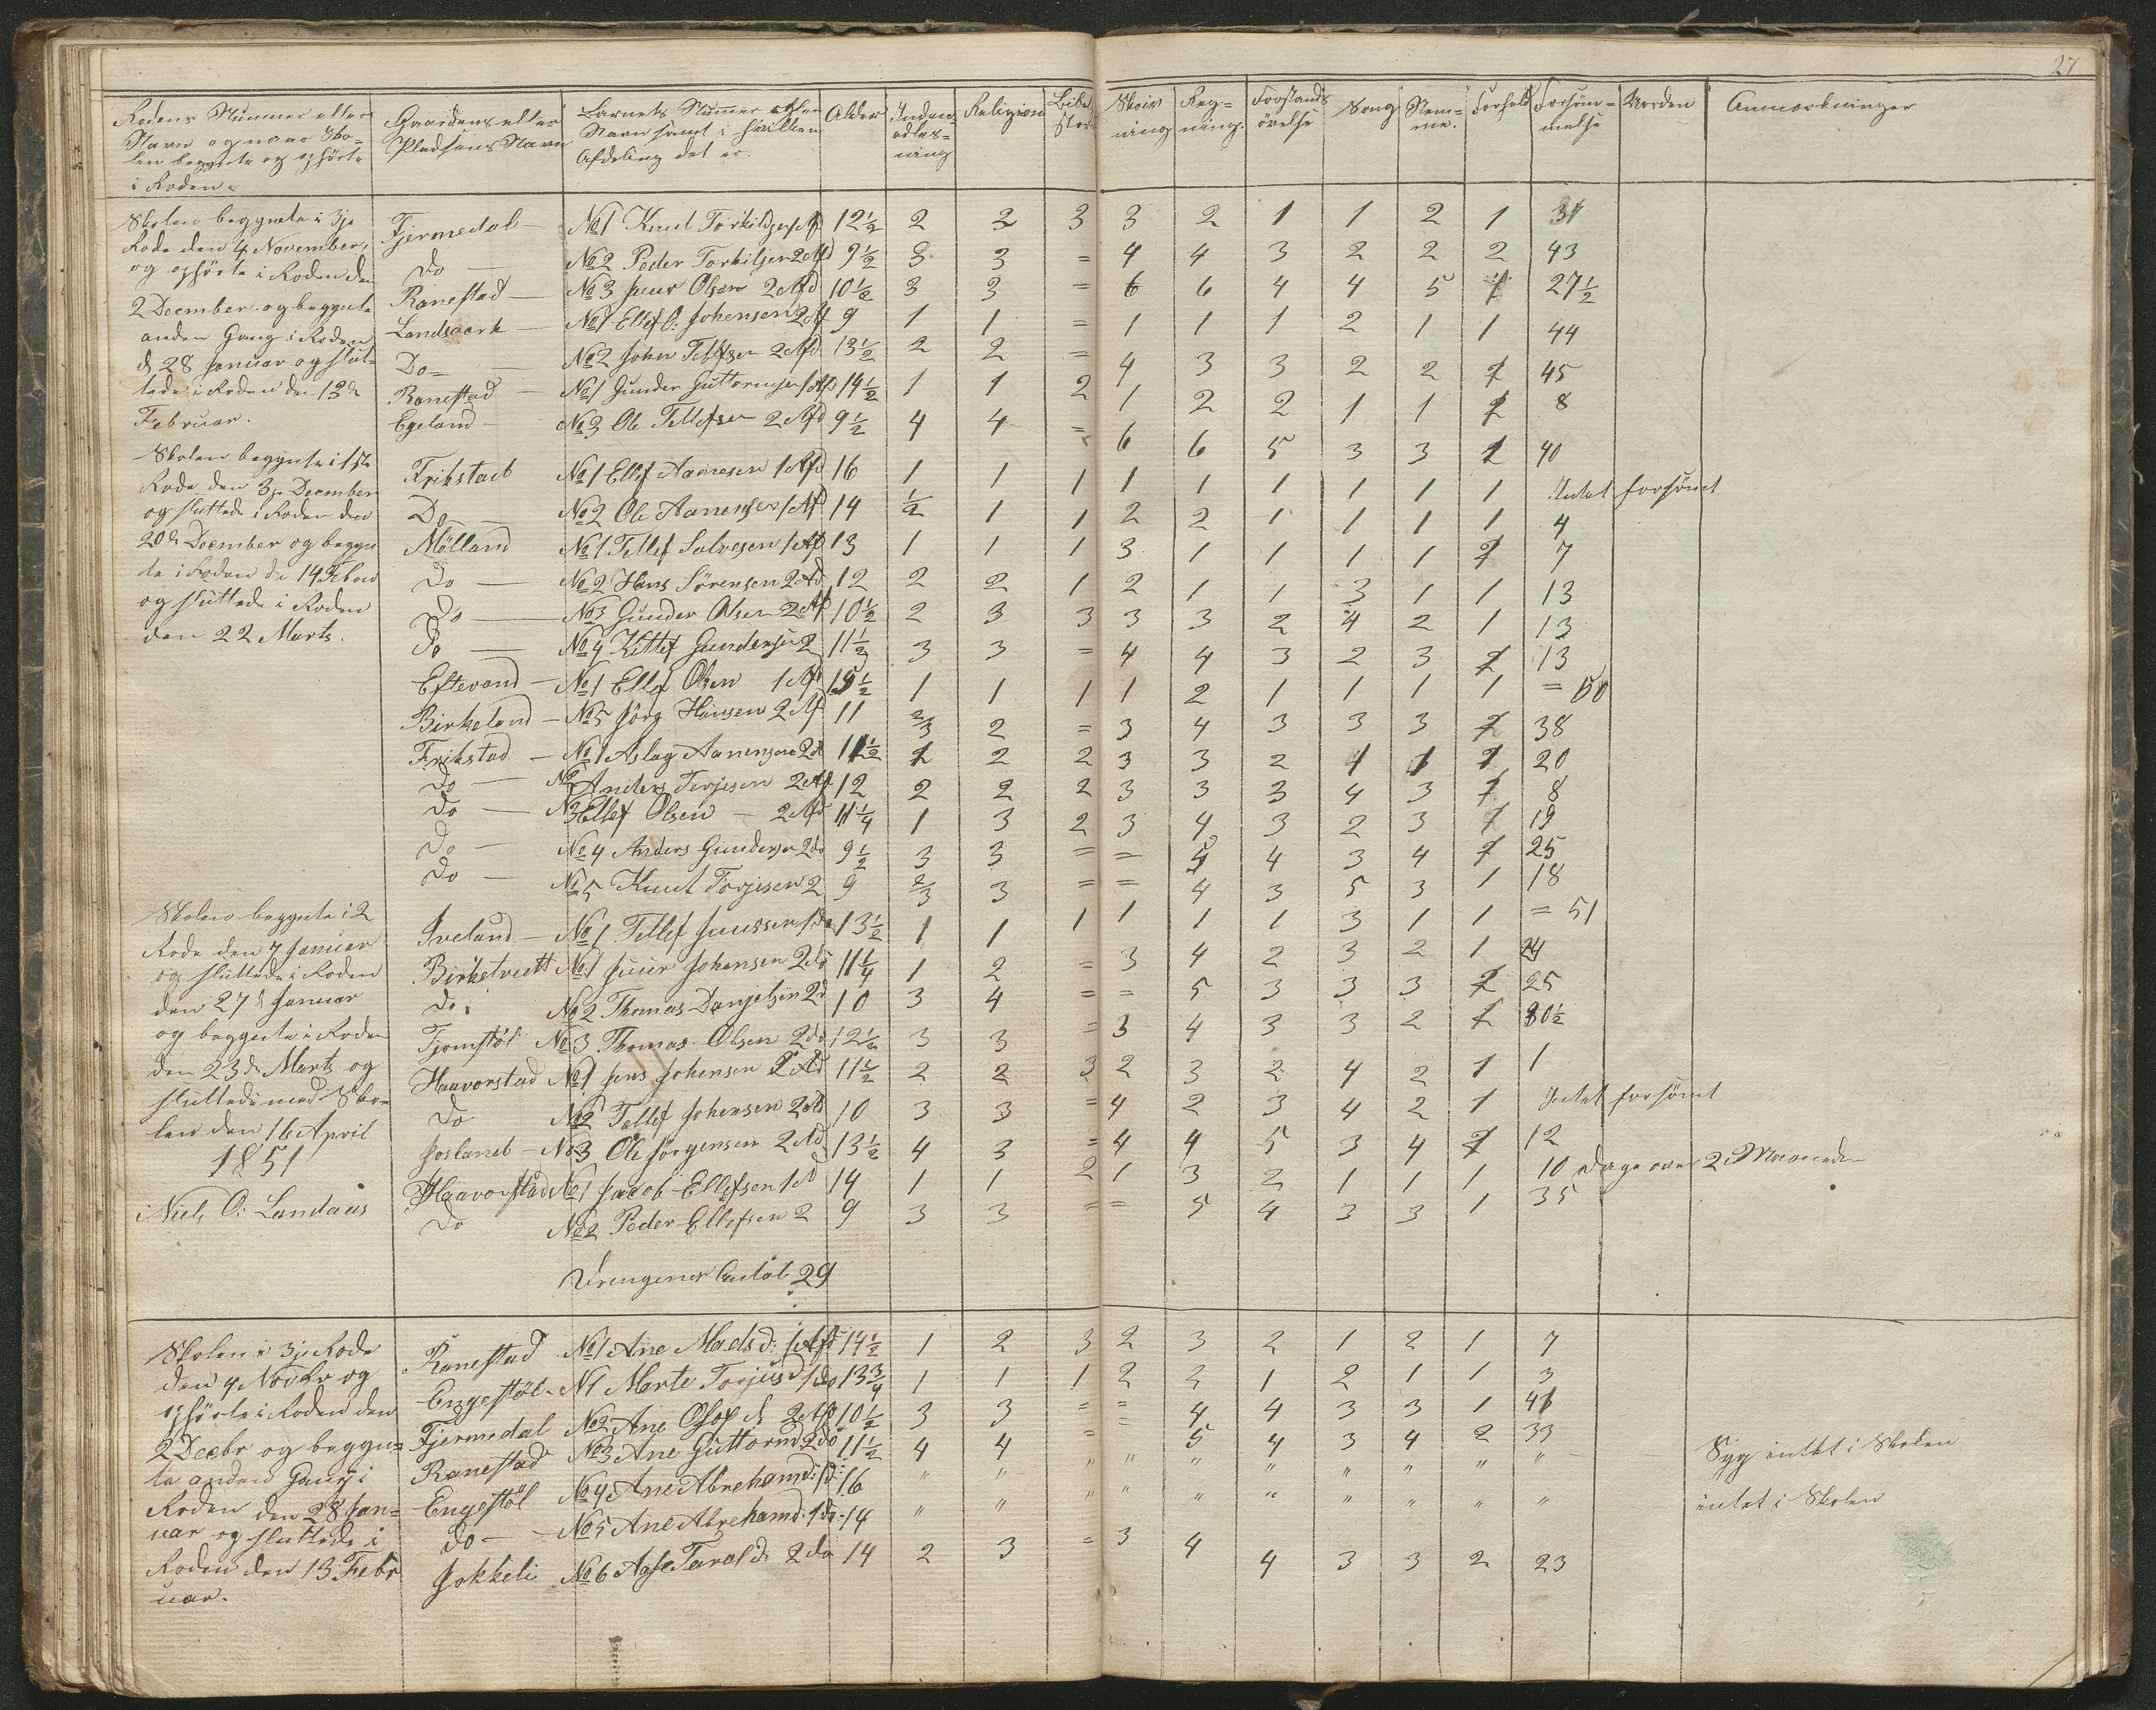 27
Rodens Nummer eller
Navn og naar Sko-
len begynte og ophörte
i Roden.
Gaardens eller
Pladsens Navn
Barnets Nummer eller
Navn samt i hvilken
Afdeling det er.
Alder
Inden-
adlæs-
ning
Religion
Bibel
Skriv
ning
Reg-
ning.
Forstands
övelse
Sang
Stem-
me.
Forhold
Forsöm-
melse
Verden
Anmærkninger
Skolen begynte i 3je
Rode den 4 November,
og ophörte i Roden den
2 December og begynte
anden Gang i Roden
d 28 Januar og slut-
tede i Roden den 13de
Februar.
Fjermedal — No 1 Knud Torkildsen 1 Af 12½ 2 2 3 3 2 1 1 2 1 31
Do — No 2 Peder Torkilsen 2 Afd 9½ 3 3 = 4 4 3 2 2 2 43
Ranestad — No 3 Juur Olsen 2 Afd 10½ 3 3 = 6 6 4 4 5 1 27½
Landsaark — No 1 Ellef O: Johensen 2 Af 9 1 1 = 1 1 1 2 1 1 44
Do — No 2 John Tellefsen 2 Afd 13½ 2 2 = 4 3 3 2 2 2 45
Ranestad — No 1 Gunder Guttormsen 1 Afd 14½ 1 1 2 1 2 2 1 1 2 8
Egeland — No 3 Ole Tellefsen 2 Afd 9½ 4 4 = 6 6 5 3 3 2 40
Skolen begynte i 1ste
Rode den 3je December
og sluttede i Roden den
20de December og begyn
te i Roden de 14 Febru
og sluttede i Roden
den 22 Marts.
Frikstad No 1 Ellef Aanesen 1 Afd 16 1 1 1 1 1 1 1 1 1 Intet forsömt
Do — No 2 Ole Aanensen 1 Af 14 ½ 1 1 2 2 1 1 1 1 4
Mölland No 1 Tellef Salvesen 1 Afd 13 1 1 1 3 1 1 1 1 2 7
Do — No 2 Hans Sörensen 2 Ad 12 2 2 1 2 1 1 3 1 1 13
Do — No 3 Gunder Olsen 2 Af 10½ 2 3 3 3 3 2 4 2 1 13
Do — No 4 Kittef Gundersen 2 11½ 3 3 = 4 4 3 2 3 2 13
Eftevand — No 1 Ellef Olsen 1 Af 15½ 1 1 1 1 2 1 1 1 1 = 50
Birkeland — No 5 Jörg Hansen 2 Af 11 2/3 2 = 3 4 3 3 3 2 38
Frikstad — No 1 Aslag Aanensen 2d 11½ 2 2 2 3 3 2 1 1 1 20
Do — No 2 Anders Terjesen 2 Af 12 2 2 2 3 3 3 4 3 1 8
Do — No 3 Ellef Olsen — 2 Afd 11¼ 1 3 2 3 4 3 2 3 1 19
Do — No 4 Anders Gundersen 2do 9½ 3 3 = = 5 4 3 4 1 25
Do — No 5 Knud Torjesen 2 9 2/3 3 = = 4 3 5 3 1 18
Skolen begynte i 2
Rode den 7 Januar
og sluttede i Roden
den 27de Januar
og begynte i Roden
den 23de Marts og
sluttede med Sko
len den 16 April
1851
Niels O: Landaas
Iveland — No 1 Tellef Juursen 1do 13½ 1 1 1 1 1 1 3 1 1 = 51
Birketveit No 1 Juur Johensen 2do 11¼ 1 2 = 3 4 2 3 2 1 24
do. No 2 Thomas Danjelsen 2d 10 3 4 = = 5 3 3 3 2 25
Tjomstöl No 3 Thomas Olsen 2do 12½ 3 3 = 3 4 3 3 2 2 30½
Haavorstad No 1 Jens Johensen 2 Ad 11½ 2 2 3 2 3 2 4 2 1 1
Do No 2 Tellef Johensen 2do 10 3 3 = 4 2 3 4 2 1 Intet forsömt
Josland — No 3 Ole Jörgensen 2 Ad 13½ 4 3 = 4 4 5 3 4 2 12
Haavorstad No 1 Jacob Ellefsen 1 A 14 1 1 2 1 3 2 1 1 1 10 dage over 2 Maaneder
Do No 2 Peder Ellefsen 2 9 3 3 = = 5 4 3 3 1 35
Drengenes Antal 29
Skolen i 3je Rode
den 4 Novbr og
ophörte i Roden den
2 Decbr og begyn-
te anden Gang i
Roden den 28 Jan-
uar og sluttede i
Roden den 13 Febr
uar.
Ranestad No 1 Ane Madsd: 1 Afd 14½ 1 2 3 2 3 2 1 2 1 7
Engestöl — No 1 Marte Torjusd 1do 13¾ 1 1 1 2 2 1 2 1 1 3
Fjermedal No 2 Ane Olofd 2 Afd 10½ 3 3 = = 4 4 3 3 1 41
Ranestad No 3 Ane Guttormd 2do 11½ 4 4 = = 5 4 3 4 2 33
Engestöl No 4 Ane Abrehamd: 1d: 16 " " " " " " " " " " Syg intet i Skolen
do — No 5 Ane Abrehamd: 1do 14 " " " " " " " " " " intet i Skolen
Jokkeli No 6 Aase Tarald d 2do 14 2 3 = 3 4 4 3 3 2 23